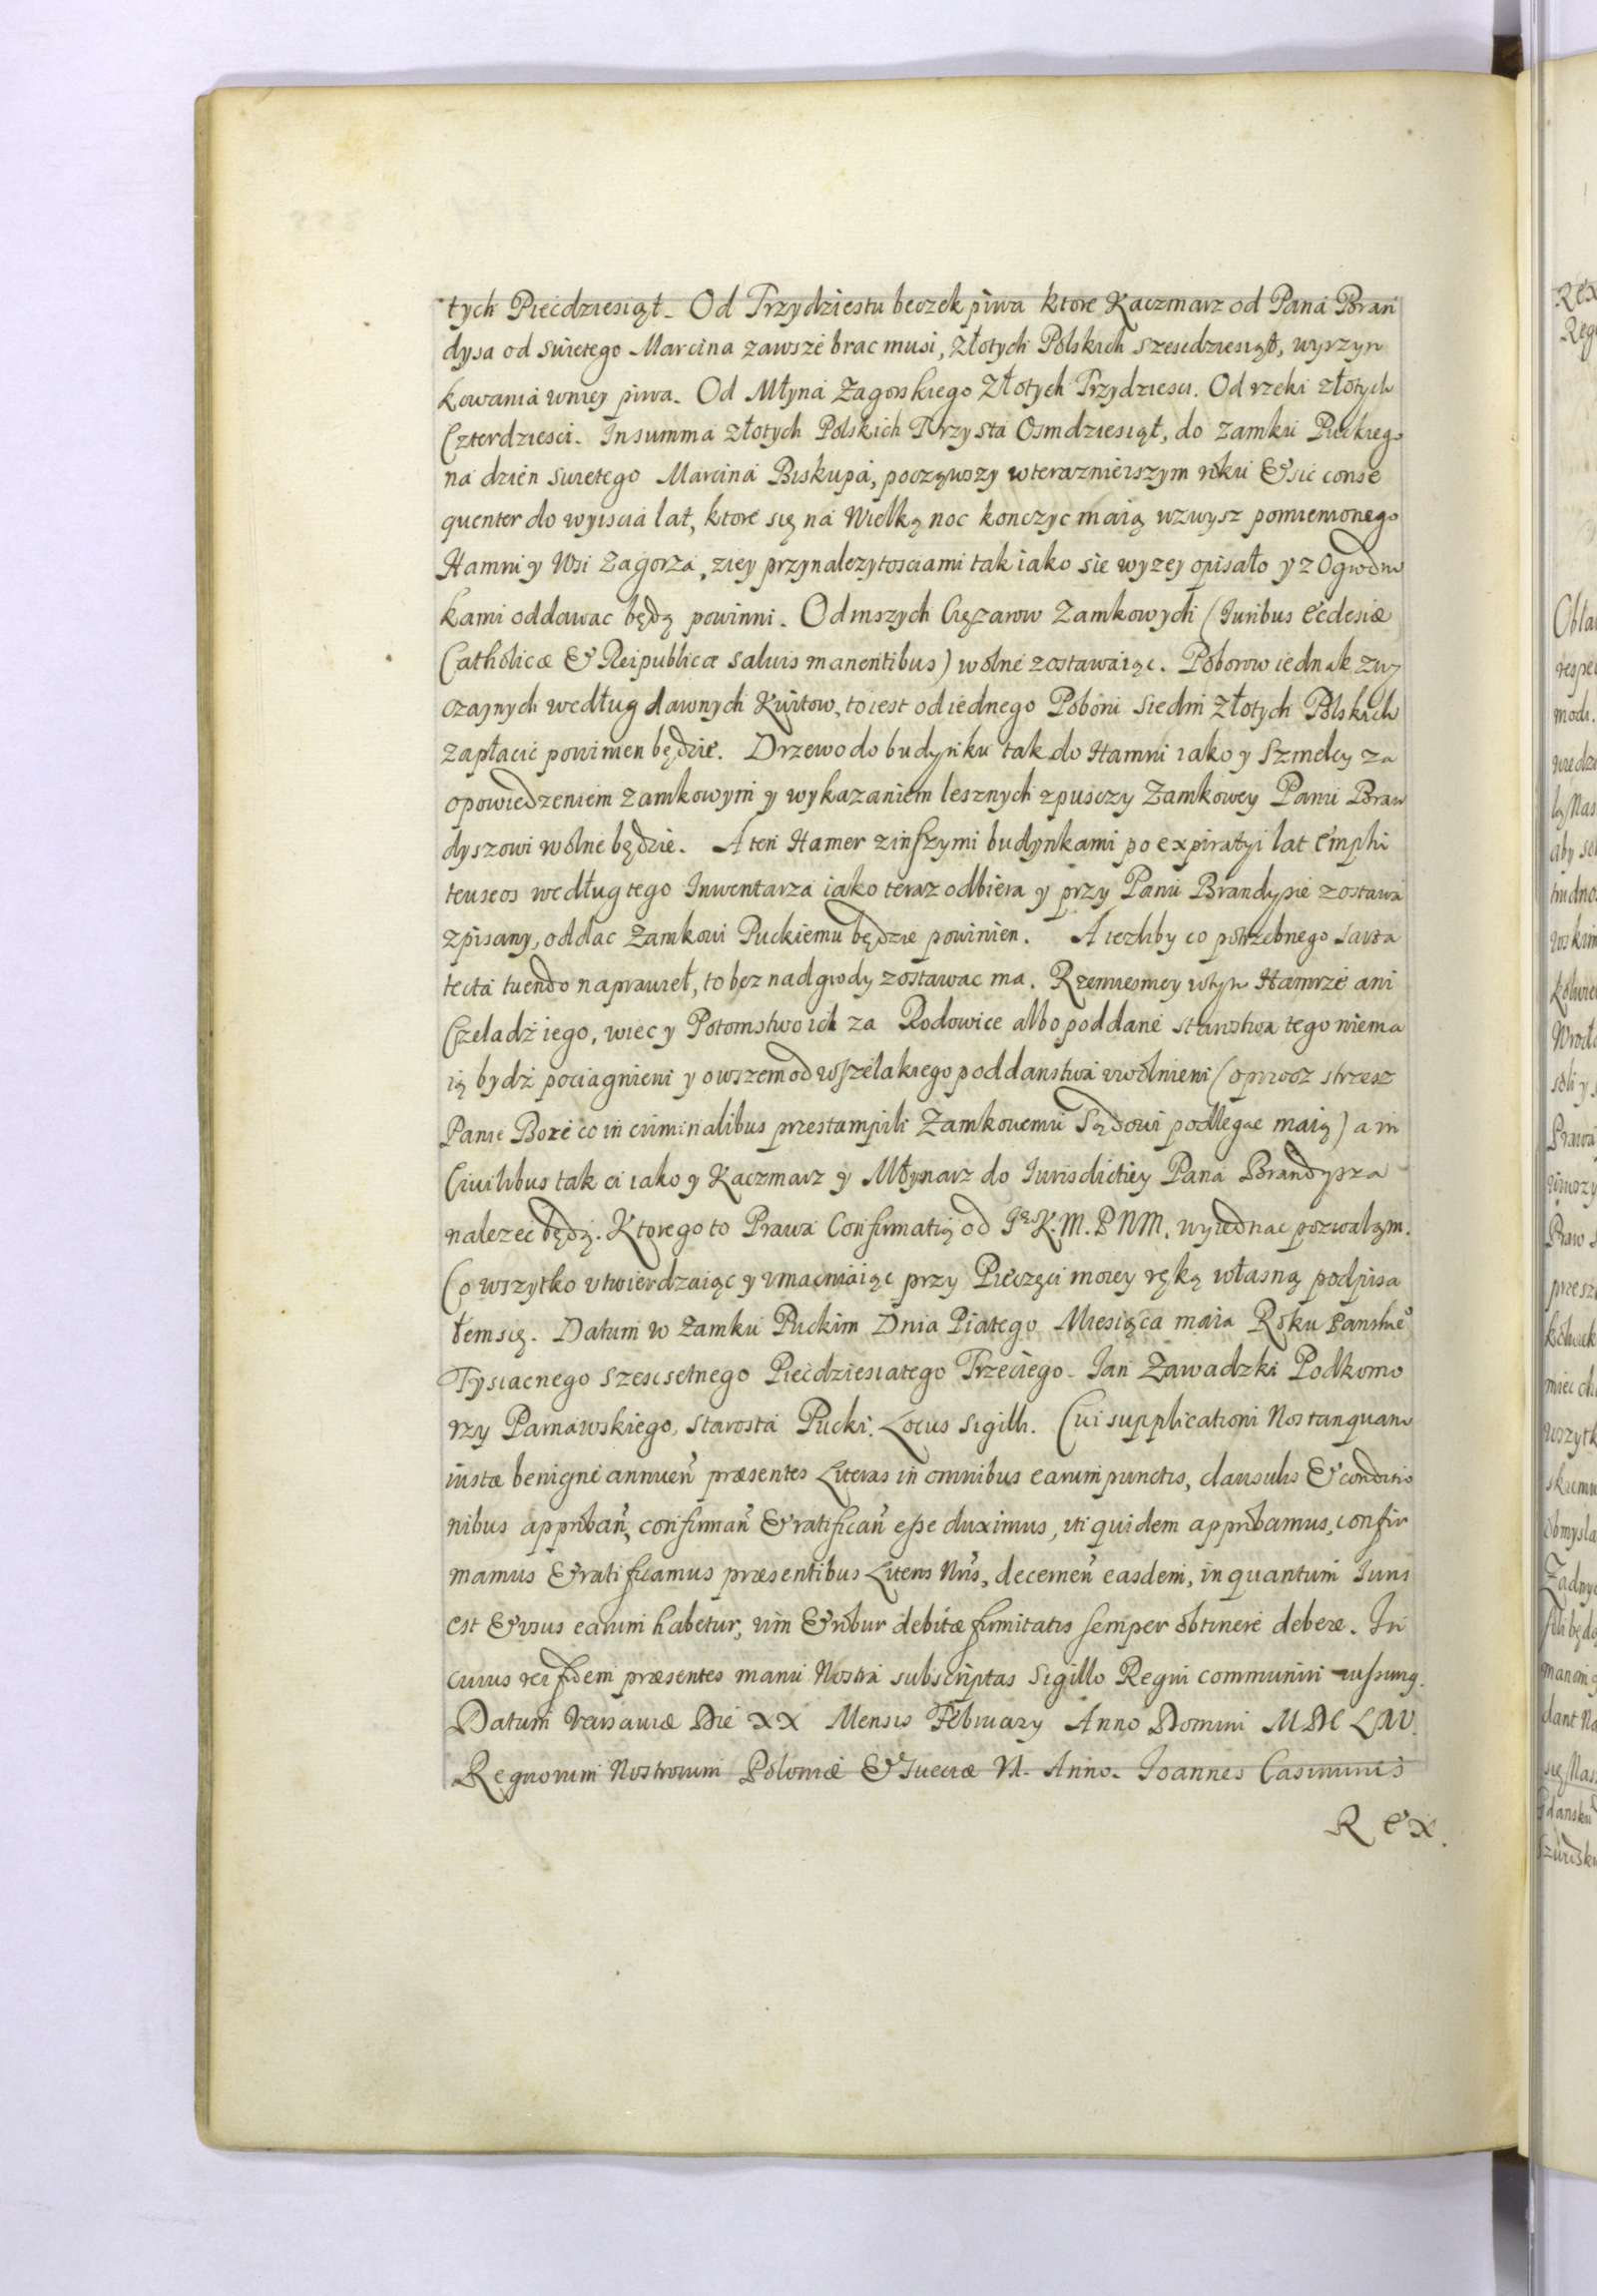 tych Piećdziesiąt. Od Trzydziestu beczek piwa ktore Kaczmarz od Pana Bran
dysa od Swietego Marcina zawsze brac musi, Złotych Polskich szescdziesiąt, wyszyn
kowania wniey piwa. Od Młyna Zagorskiego Złotych Trzydziesci. Od rzeki złotych
Czterdziesci. In summa złotych Polskich Trzysta Osmdziesiąt, do Zamku Puckiego
na dzien Swietego Marcina Biskupa, począwszy w terazniejszym roku & sic conse
quenter do wyiscia lat, ktore się na Wielką noc konczyc maią wzwysz pomienionego
Hamru y Wsi Zagorza, z iey przynalezytosciami tak iako sie wyzey opisało y z Ogrodni
kami oddawac będą powinni. Od inszych Ciężarow Zamkowych (Iuribus Ecclesiæ
Catholicæ & Reipublicæ salvis manentibus) wolne zostawaiąc. Poborow iednak zwy
czaynych według dawnych Kwitow, to iest od iednego Poboru Siedm Złotych Polskich
zapłacić powinien będzie. Drzewo do budynku tak do Hamru iako y Szmelcy za
opowiedzeniem zamkowym y wykazaniem lesznych z puszczy Zamkowey Panu Bran
dyszowi wolne będzie. A ten Hamer z inszymi budynkami po expiratyi lat Emphi
teuseos według tego Inwentarza iako teraz odbiera y przy Panu Brandysie zostawa
zpisany, oddac Zamkowi Puckiemu będzie powinien. A iezliby co potrzebnego sarta
tecta tuendo naprawieł, to bez nadgrody zostawac ma. Rzemiesnicy w tym Hamrze ani
Czeladź iego, wiec y Potomstwo ich za Rodowice albo poddane starostwa tego nie ma
ią bydź pociagnieni y owszem od wszelakiego poddanstwa uwolnieni (oprocz strzesz
Panie Boze co in criminalibus przestąmpili Zamkowemu Sądowi podlegac maią) a in
Civilibus tak ci iako y Kaczmarz y Młynarz do Iurisdictiey Pana Brandysza
nalezec będą. Ktorego to Prawa Confirmatią od Je K. M. P N M. wyiednac pozwalam.
Co wszytko utwierdzaiąc y umacniaiąc przy Pieczęci moiey ręką własną podpisa
łem się. Datum w Zamku Puckim Dnia Piatego Miesiąca maia Roku Panskie
Tysiacnego szescsetnego Piećdziesiatego Trzeciego. Jan Zawadzki Podkomo
rzy Parnawskiego, Starosta Pucki. Locus Sigilli. Cui supplicationi Nos tanquam
iustæ benigne annuen præsentes Literas in omnibus earum punctis, clausulis & conditio
nibus approban, confirman & ratifican esse duximus, uti quidem approbamus, confir
mamus & ratificamus præsentibus Literis Nris, decernen easdem, in quantum Iuris
est & usus earum habetur, vim & robur debitæ firmitatis semper obtinere debere. In
cuius rei fidem præsentes manu Nostra subscriptas Sigillo Regni communiri iussimg.
Datum Varsaviæ Die XX Mensis February Anno Domini
Regnorum Nostrorum Poloniæ & Sueciæ Anno. Ioannes Casimirus
Rex.